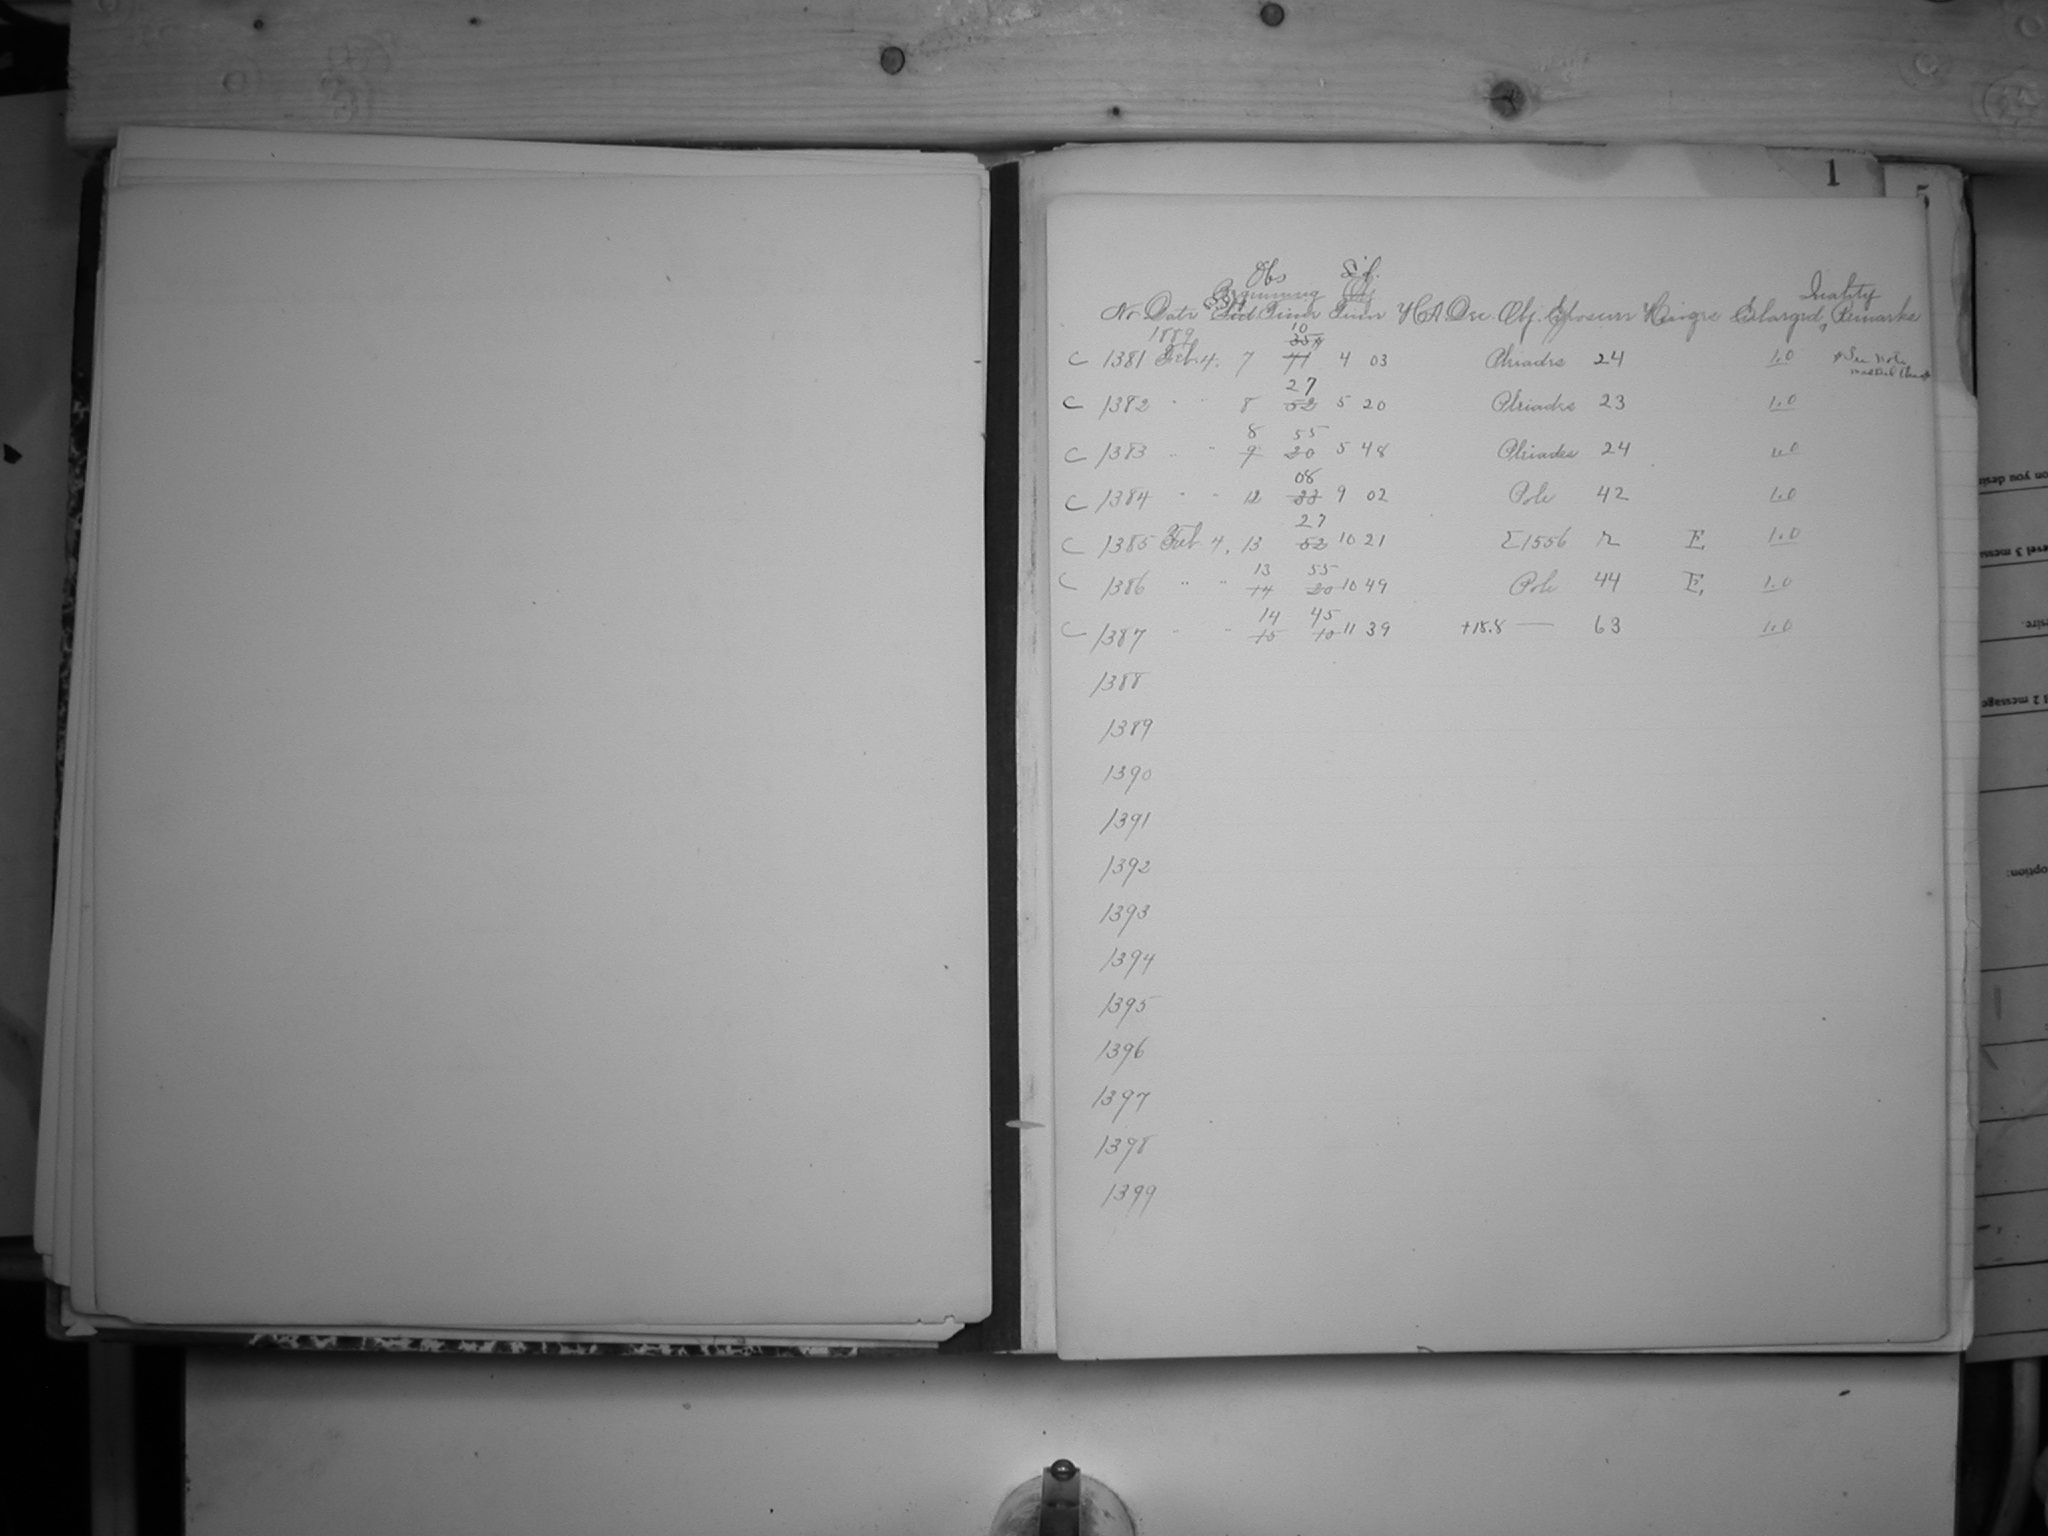 1
5
Obs Sid.
Beginning Quality
No Date Sid. Time Time H.A. Dec. Obj. Exposure Rings Enlarged, Remarks
1889 10
35
C 1381 Feb. 4. 7 11 4 03 Pleiades 24 1.0 *See Note
27
C 1382 " " 8 52 5 20 Pleiades 23 1.0
8 55
C 1383 " " 9 20 5 48 Pleiades 24 1.0
08
C 1384 " " 12 33 9 02 Pole 42 1.0
27
C 1385 Feb. 4. 13 52 10 21 Σ1556 E. 1.0
13 55
C 1386 " " 14 20 10 49 Pole 44 E. 1.0
14 45
C 1387 " " 15 10 11 39 +18.8 — 63 1.0
1388
1389
1390
1391
1392
1393
1394
1395
1396
1397
1398
1399
on you desire
evel 3 messa
sire.
l 2 message
option: